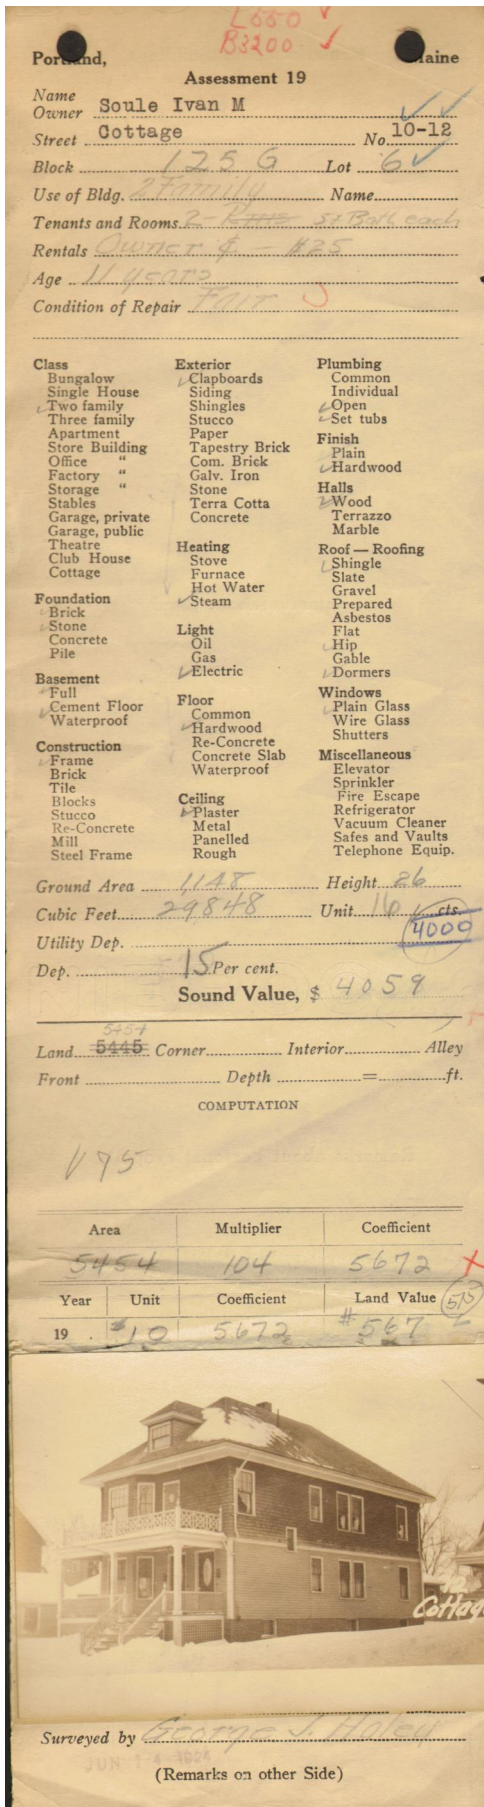 L550 ✓
B3200 ✓
Portland, Maine
Assessment 19
Name
Owner Soule Ivan M
Street Cottage No. 10-12
Block 125 G Lot 6 ✓
Use of Bldg. 2 Family Name
Tenants and Rooms 2- Rms 5+Bath each
Rentals Owner & - #25
Age 11 years
Condition of Repair Fair
Class
Bungalow
Single House
✓Two family
Three family
Apartment
Store Building
Office "
Factory "
Storage "
Stables
Garage, private
Garage, public
Theatre
Club House
Cottage
Foundation
✓Brick
✓Stone
Concrete
Pile
Basement
✓Full
✓Cement Floor
Waterproof
Construction
✓Frame
Brick
Tile
Blocks
Stucco
Re-Concrete
Mill
Steel Frame
Exterior
✓Clapboards
Siding
Shingles
Stucco
Paper
Tapestry Brick
Com. Brick
Galv. Iron
Stone
Terra Cotta
Concrete
Heating
Stove
Furnace
Hot Water
✓Steam
Light
Oil
Gas
✓Electric
Floor
Common
✓Hardwood
Re-Concrete
Concrete Slab
Waterproof
Ceiling
✓Plaster
Metal
Panelled
Rough
Plumbing
Common
Individual
✓Open
✓Set tubs
Finish
Plain
✓Hardwood
Halls
✓Wood
Terrazzo
Marble
Roof — Roofing
✓Shingle
Slate
Gravel
Prepared
Asbestos
Flat
✓Hip
Gable
✓Dormers
Windows
✓Plain Glass
Wire Glass
Shutters
Miscellaneous
Elevator
Sprinkler
Fire Escape
Refrigerator
Vacuum Cleaner
Safes and Vaults
Telephone Equip.
Ground Area 1,148 Height 26
Cubic Feet 29848 Unit 16 cts.
Utility Dep. 4000
Dep. 15 Per cent.
Sound Value, $ 4059
5454
Land 5445 Corner Interior Alley
Front Depth = ft.
COMPUTATION
1/95
Area Multiplier Coefficient
5454 104 5672
Year Unit Coefficient Land Value 575
19 . $10 5672 #567
Cottag
Surveyed by George J. Holey
JUN 14 1924
(Remarks on other Side)